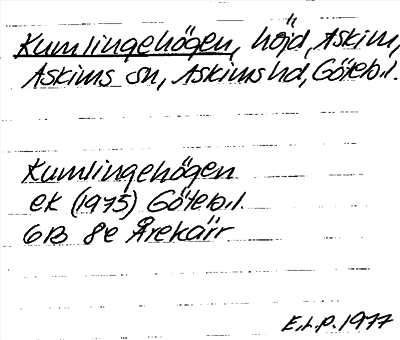 Kumlingehögen, höjd, Askim,
Askims sn, Askims hd, Göteb.l.
Kumlingehögen
ek (1975) Göteb.l.
6B 8e Årekärr
E.L.P. 1977